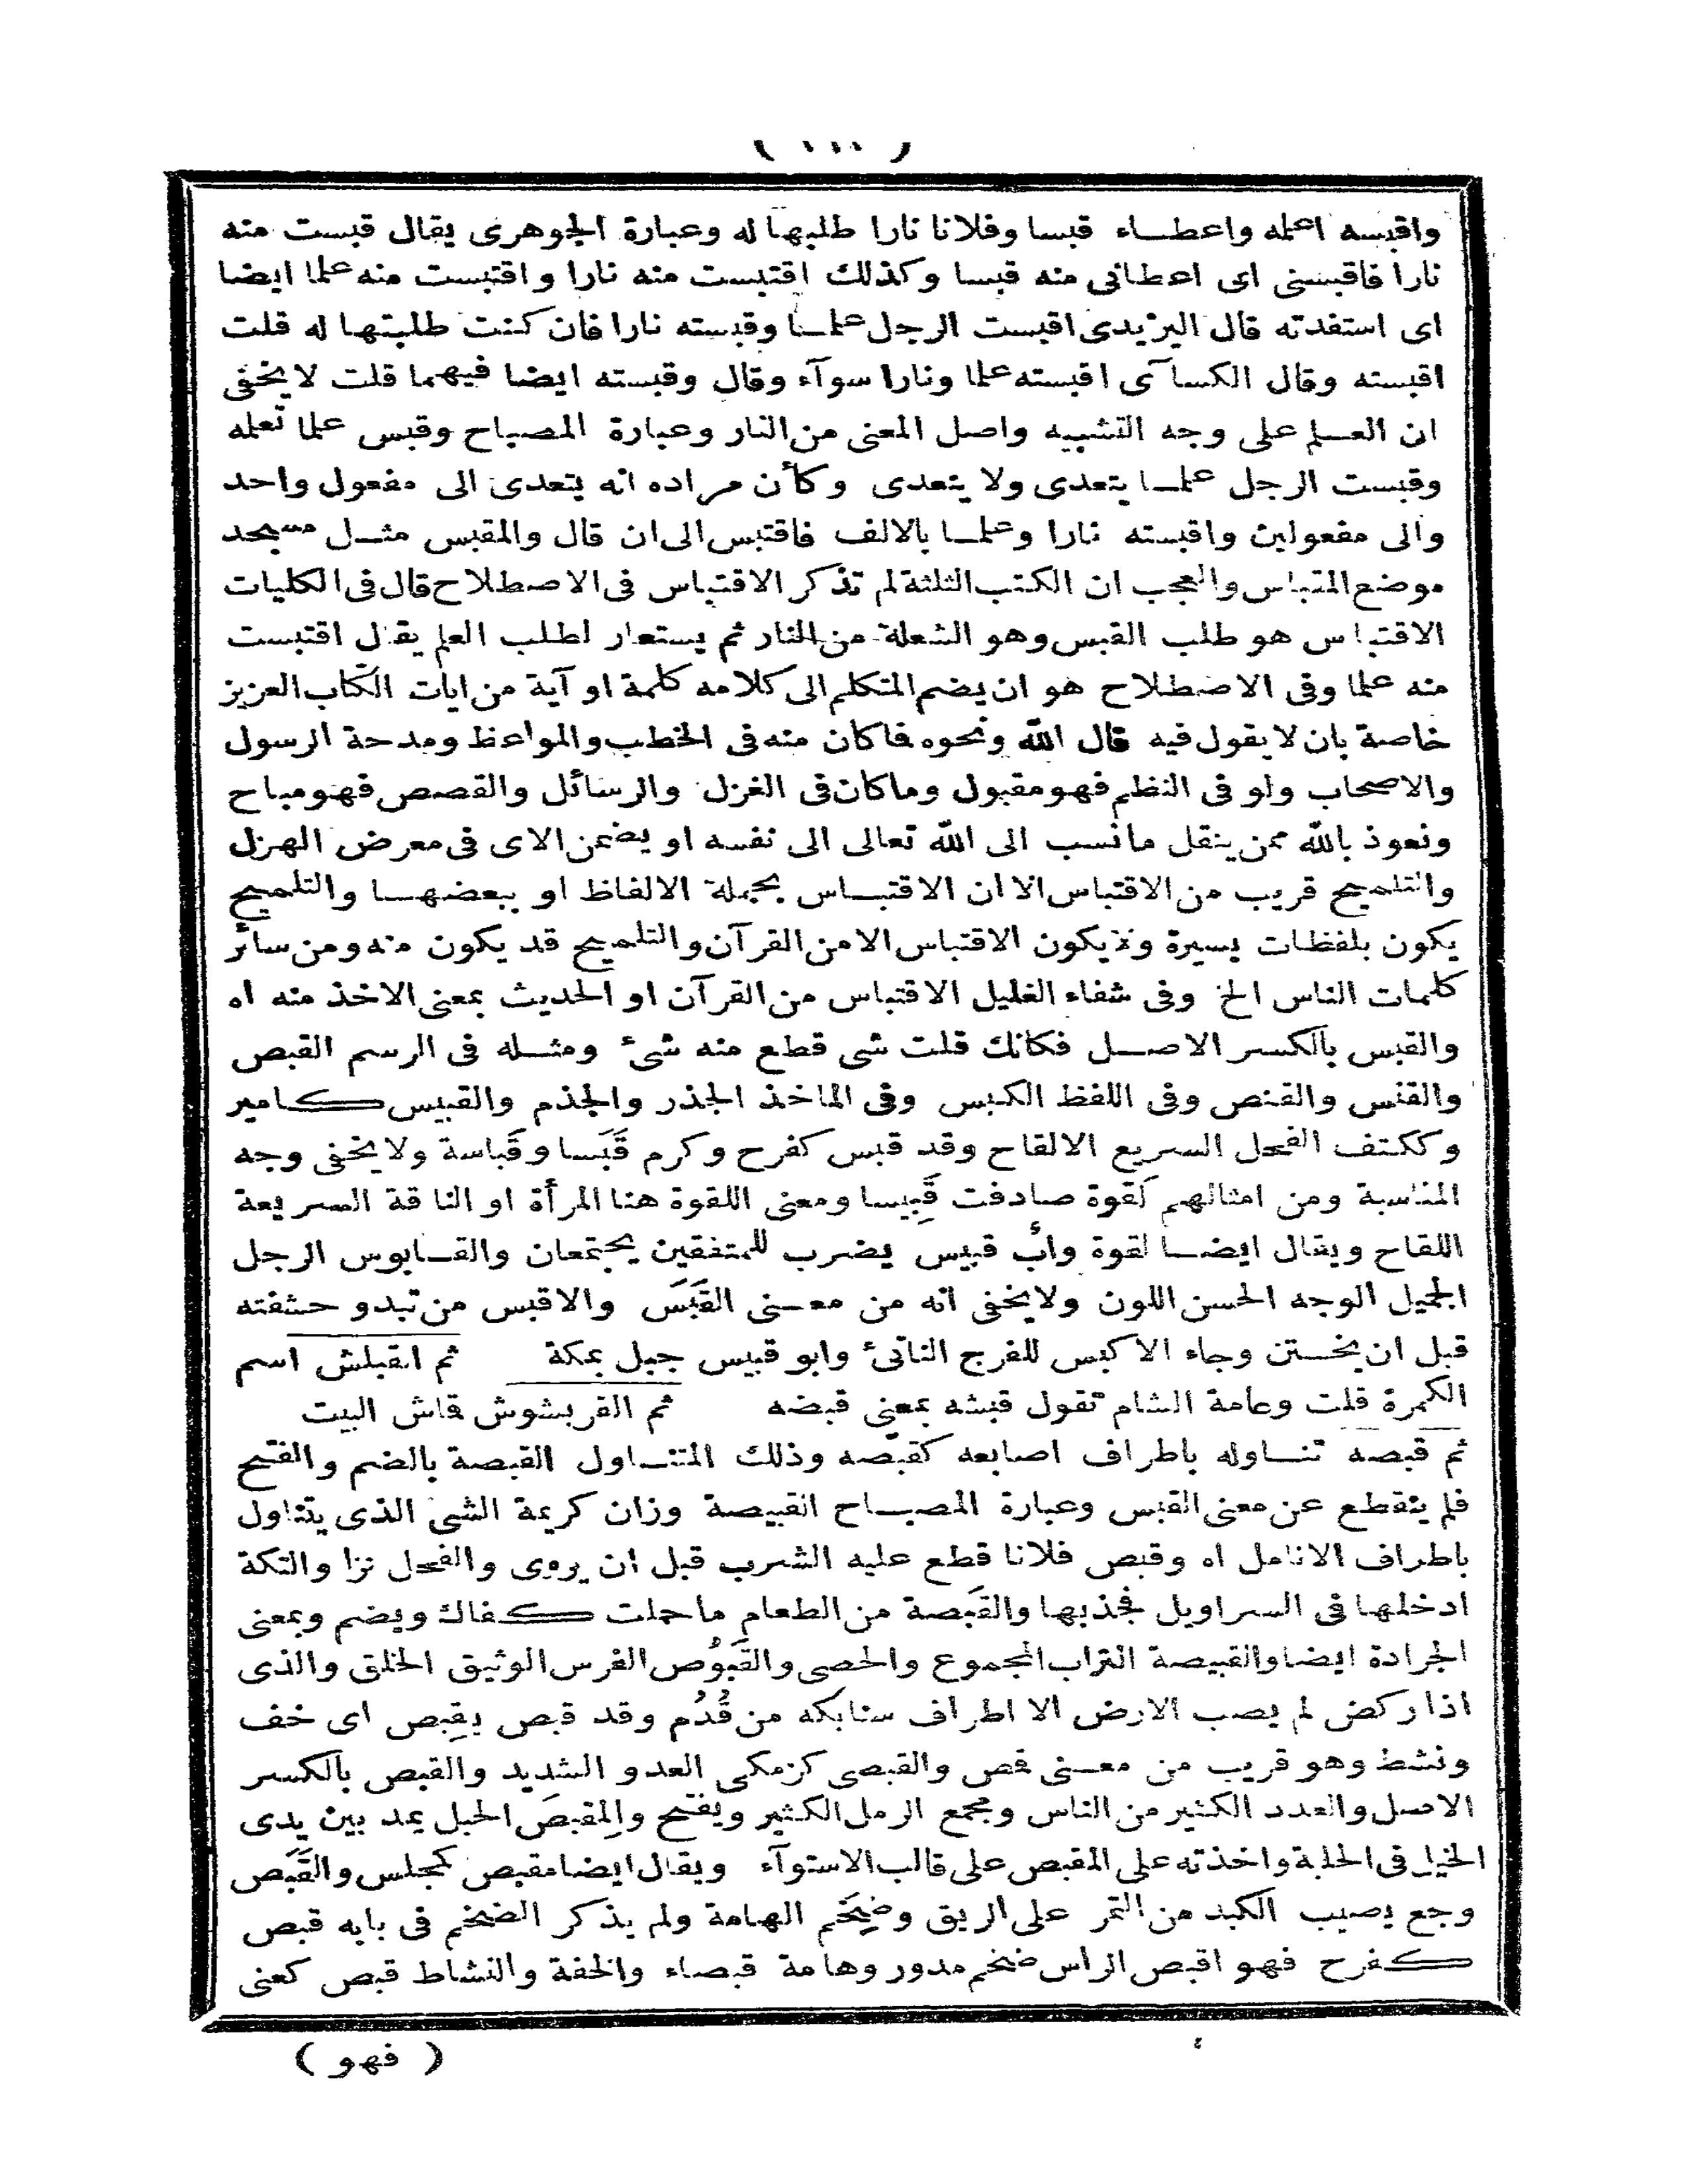 ( ١١١ )
واقبسه اعمله واعطاء قبسا وفلانا نارا طلبها له وعبارة الجوهرى يقال قبست منه
نارا فاقبسنى اى اعطانى منه قبسا وكذلك اقتبست منه نارا واقتبست منه علما ايضا
اى استفدته قال اليزيدى اقبست الرجل علما وقبسته نارا فان كنت طلبتها له قلت
اقبسته وقال الكسآى اقبسته علما ونارا سوآء وقال وقبسته ايضا فيهما قلت لا يخفى
ان العلم على وجه التشبيه واصل المعنى من النار وعبارة المصباح وقبس علما تعلمه
وقبست الرجل علما يتعدى ولا يتعدى وكأن مراده انه يتعدى الى مفعول واحد
والى مفعولين واقبسته نارا وعلما بالالف فاقتبس الى ان قال والمقبس مثل مسجد
موضع المقباس والعجب ان الكتب الثلثة لم تذكر الاقتباس فى الاصطلاح قال فى الكليات
الاقتباس هو طلب القبس وهو الشعلة من النار ثم يستعار لطلب العلم يقال اقتبست
منه علما وفى الاصطلاح هو ان يضم المتكلم الى كلامه كلمة او آية من ايات الكتاب العزيز
خاصة بان لا يقول فيه قال الله ونحوه فاكان منه فى الخطب والمواعظ ومدحة الرسول
والاصحاب ولو فى النظم فهو مقبول وماكان فى الغزل والرسائل والقصص فهو مباح
ونعوذ بالله ممن ينقل مانسب الى الله تعالى الى نفسه او يضمن الاى فى معرض الهزل
والتلميح قريب من الاقتباس الا ان الاقتباس بجملة الالفاظ او ببعضها والتلميح
يكون بلفظات يسيرة ولا يكون الاقتباس الا من القرآن والتلميح قد يكون منه ومن سائر
كلمات الناس الخ وفى شفاء الغليل الاقتباس من القرآن او الحديث بمعنى الاخذ منه اه
والقبس بالكسر الاصل فكانك قلت شى قطع منه شىء ومثله فى الرسم القبص
والقنس والقنص وفى اللفظ الكبس وفى الماخذ الجذر والجذم والقبيس كامير
وككتف الفحل السريع الالقاح وقد قبس كفرح وكرم قَبَسا وقَباسة ولا يخفى وجه
المناسبة ومن امثالهم لَقوة صادفت قَبِيسا ومعنى اللقوة هنا المرأة او الناقة السريعة
اللقاح ويقال ايضا لقوة وأب قبيس يضرب للمتفقين يجتمعان والقابوس الرجل
الجميل الوجه الحسن اللون ولا يخفى انه من معنى القَبَس والاقبس من تبدو حشفته
قبل ان يختتن وجاء الاكبس للفرج الناتئ وابو قبيس جبل بمكة ثم القبلش اسم
الكمرة قلت وعامة الشام تقول قبشه بمعنى قبضه ثم القربشوش قاش البيت
ثم قبصه تناوله باطراف اصابعه كقبّصه وذلك المتناول القبصة بالضم والفتح
فلم ينقطع عن معنى القبس وعبارة المصباح القبيصة وزان كريمة الشى الذى يتناول
باطراف الانامل اه وقبص فلانا قطع عليه الشرب قبل ان يروى والفحل نزا والتكة
ادخلها فى السراويل فجذبها والقَبصة من الطعام ما حملت كفاك ويضم وبمعنى
الجرادة ايضا والقبيصة التراب المجموع والحصى والقَبُوص الفرس الوثيق الخلق والذى
اذا ركض لم يصب الارض الا اطراف سنابكه من قُدُم وقد قبص يقبِص اى خف
ونشط وهو قريب من معنى قمص والقبصى كزمكى العدو الشديد والقبص بالكسر
الاصل والعدد الكثير من الناس ومجمع الرمل الكثير ويفتح والمِقبَص الحبل يمد بين يدى
الخيل فى الحلبة واخذته على المقبص على قالب الاستوآء ويقال ايضا مقبص كمجلس والقَبَص
وجع يصيب الكبد من التمر على الريق وضِخَم الهامة ولم يذكر الضخم فى بابه قبص
كفرح فهو اقبص الراس ضخم مدور وهامة قبصاء والخفة والنشاط قبص كعنى
( فهو )